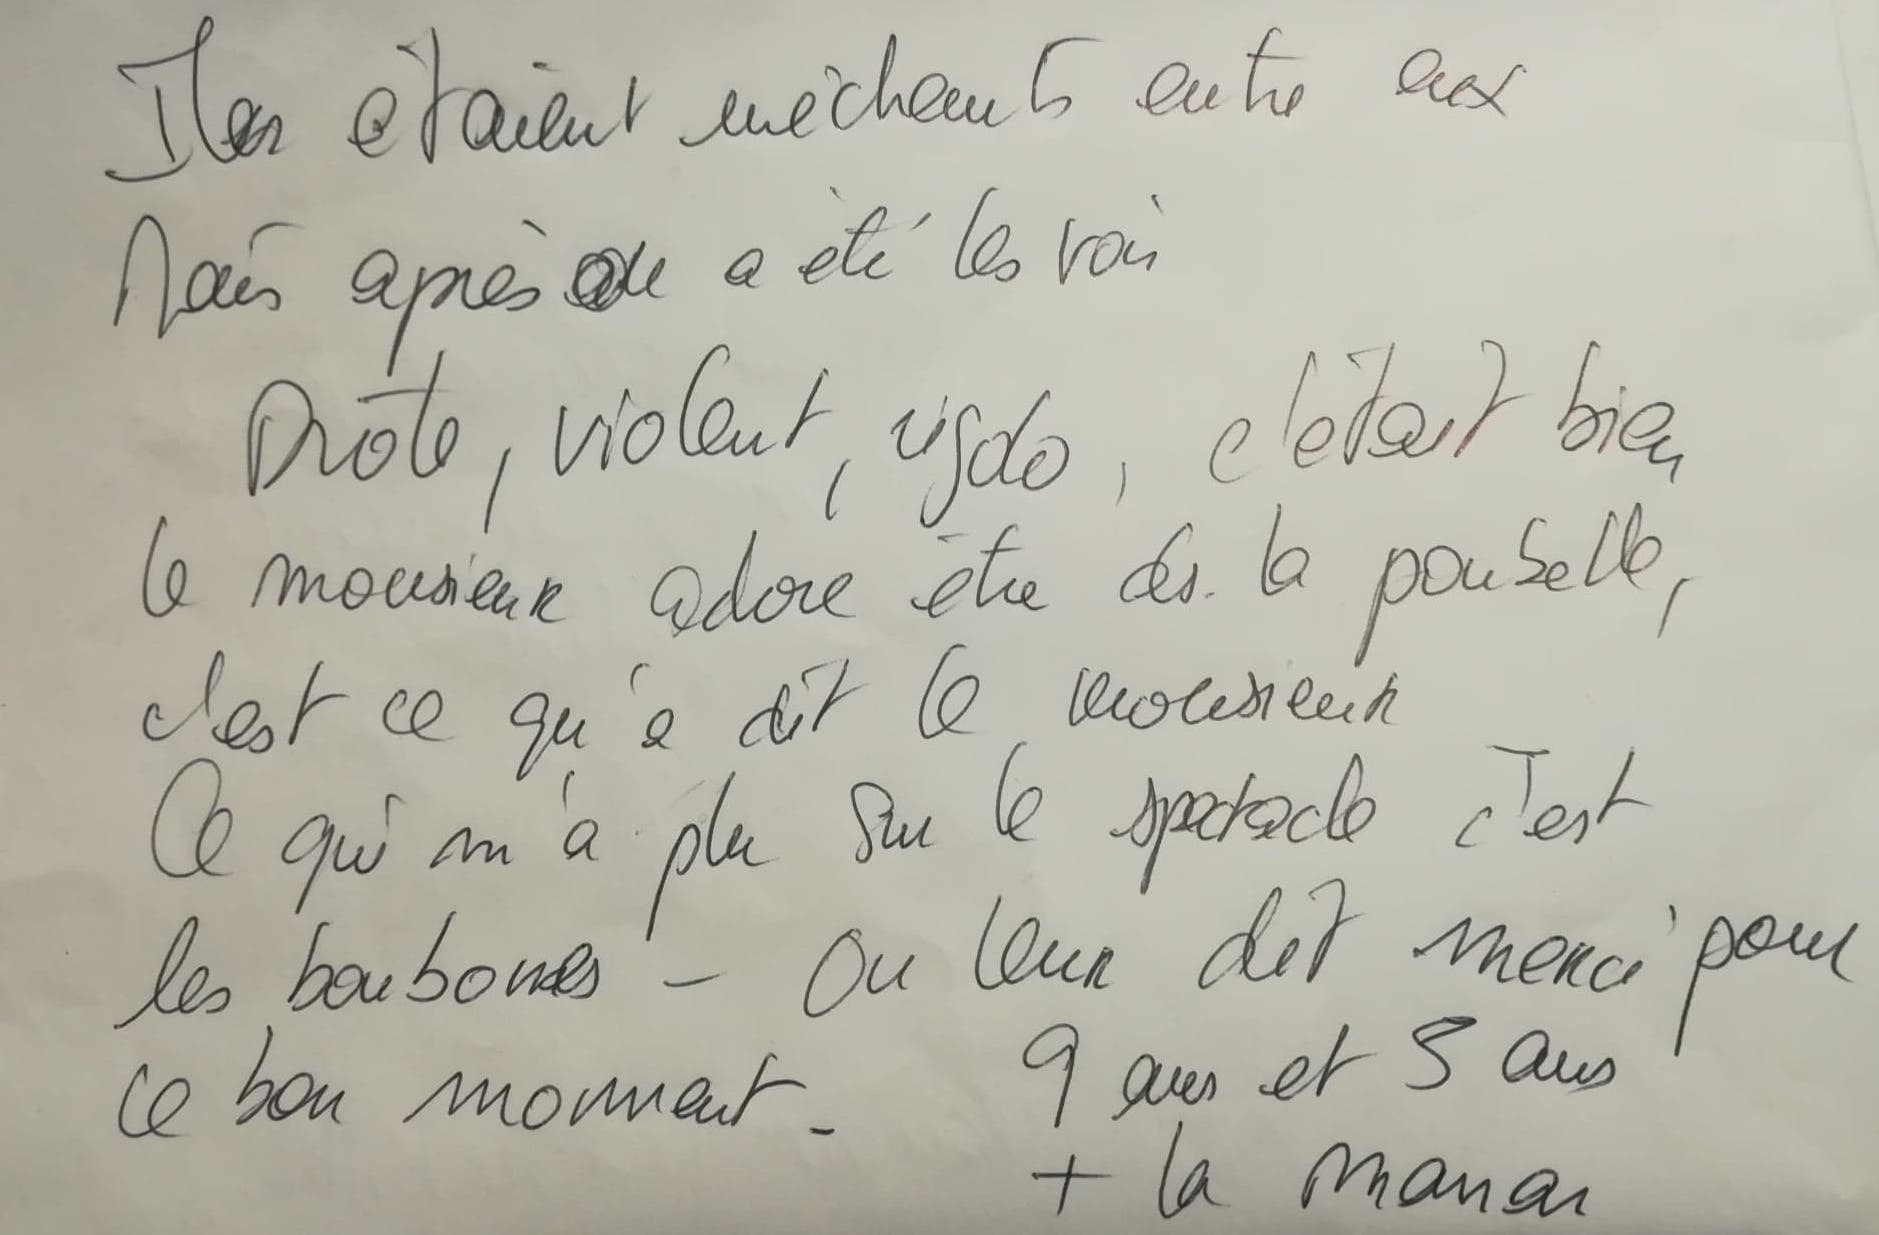 Ils étaient méchants entre eux
Mais après on a été les voir
Drôle, violent, rigolo, c'était bien
le monsieur adore être ds. la poubelle,
c'est ce qu'a dit le monsieur
Ce qui m'a plu sur le spectacle c'est
les bonbonnes - On leur dit merci pour
ce bon moment.
9 ans et 5 ans
+ la maman